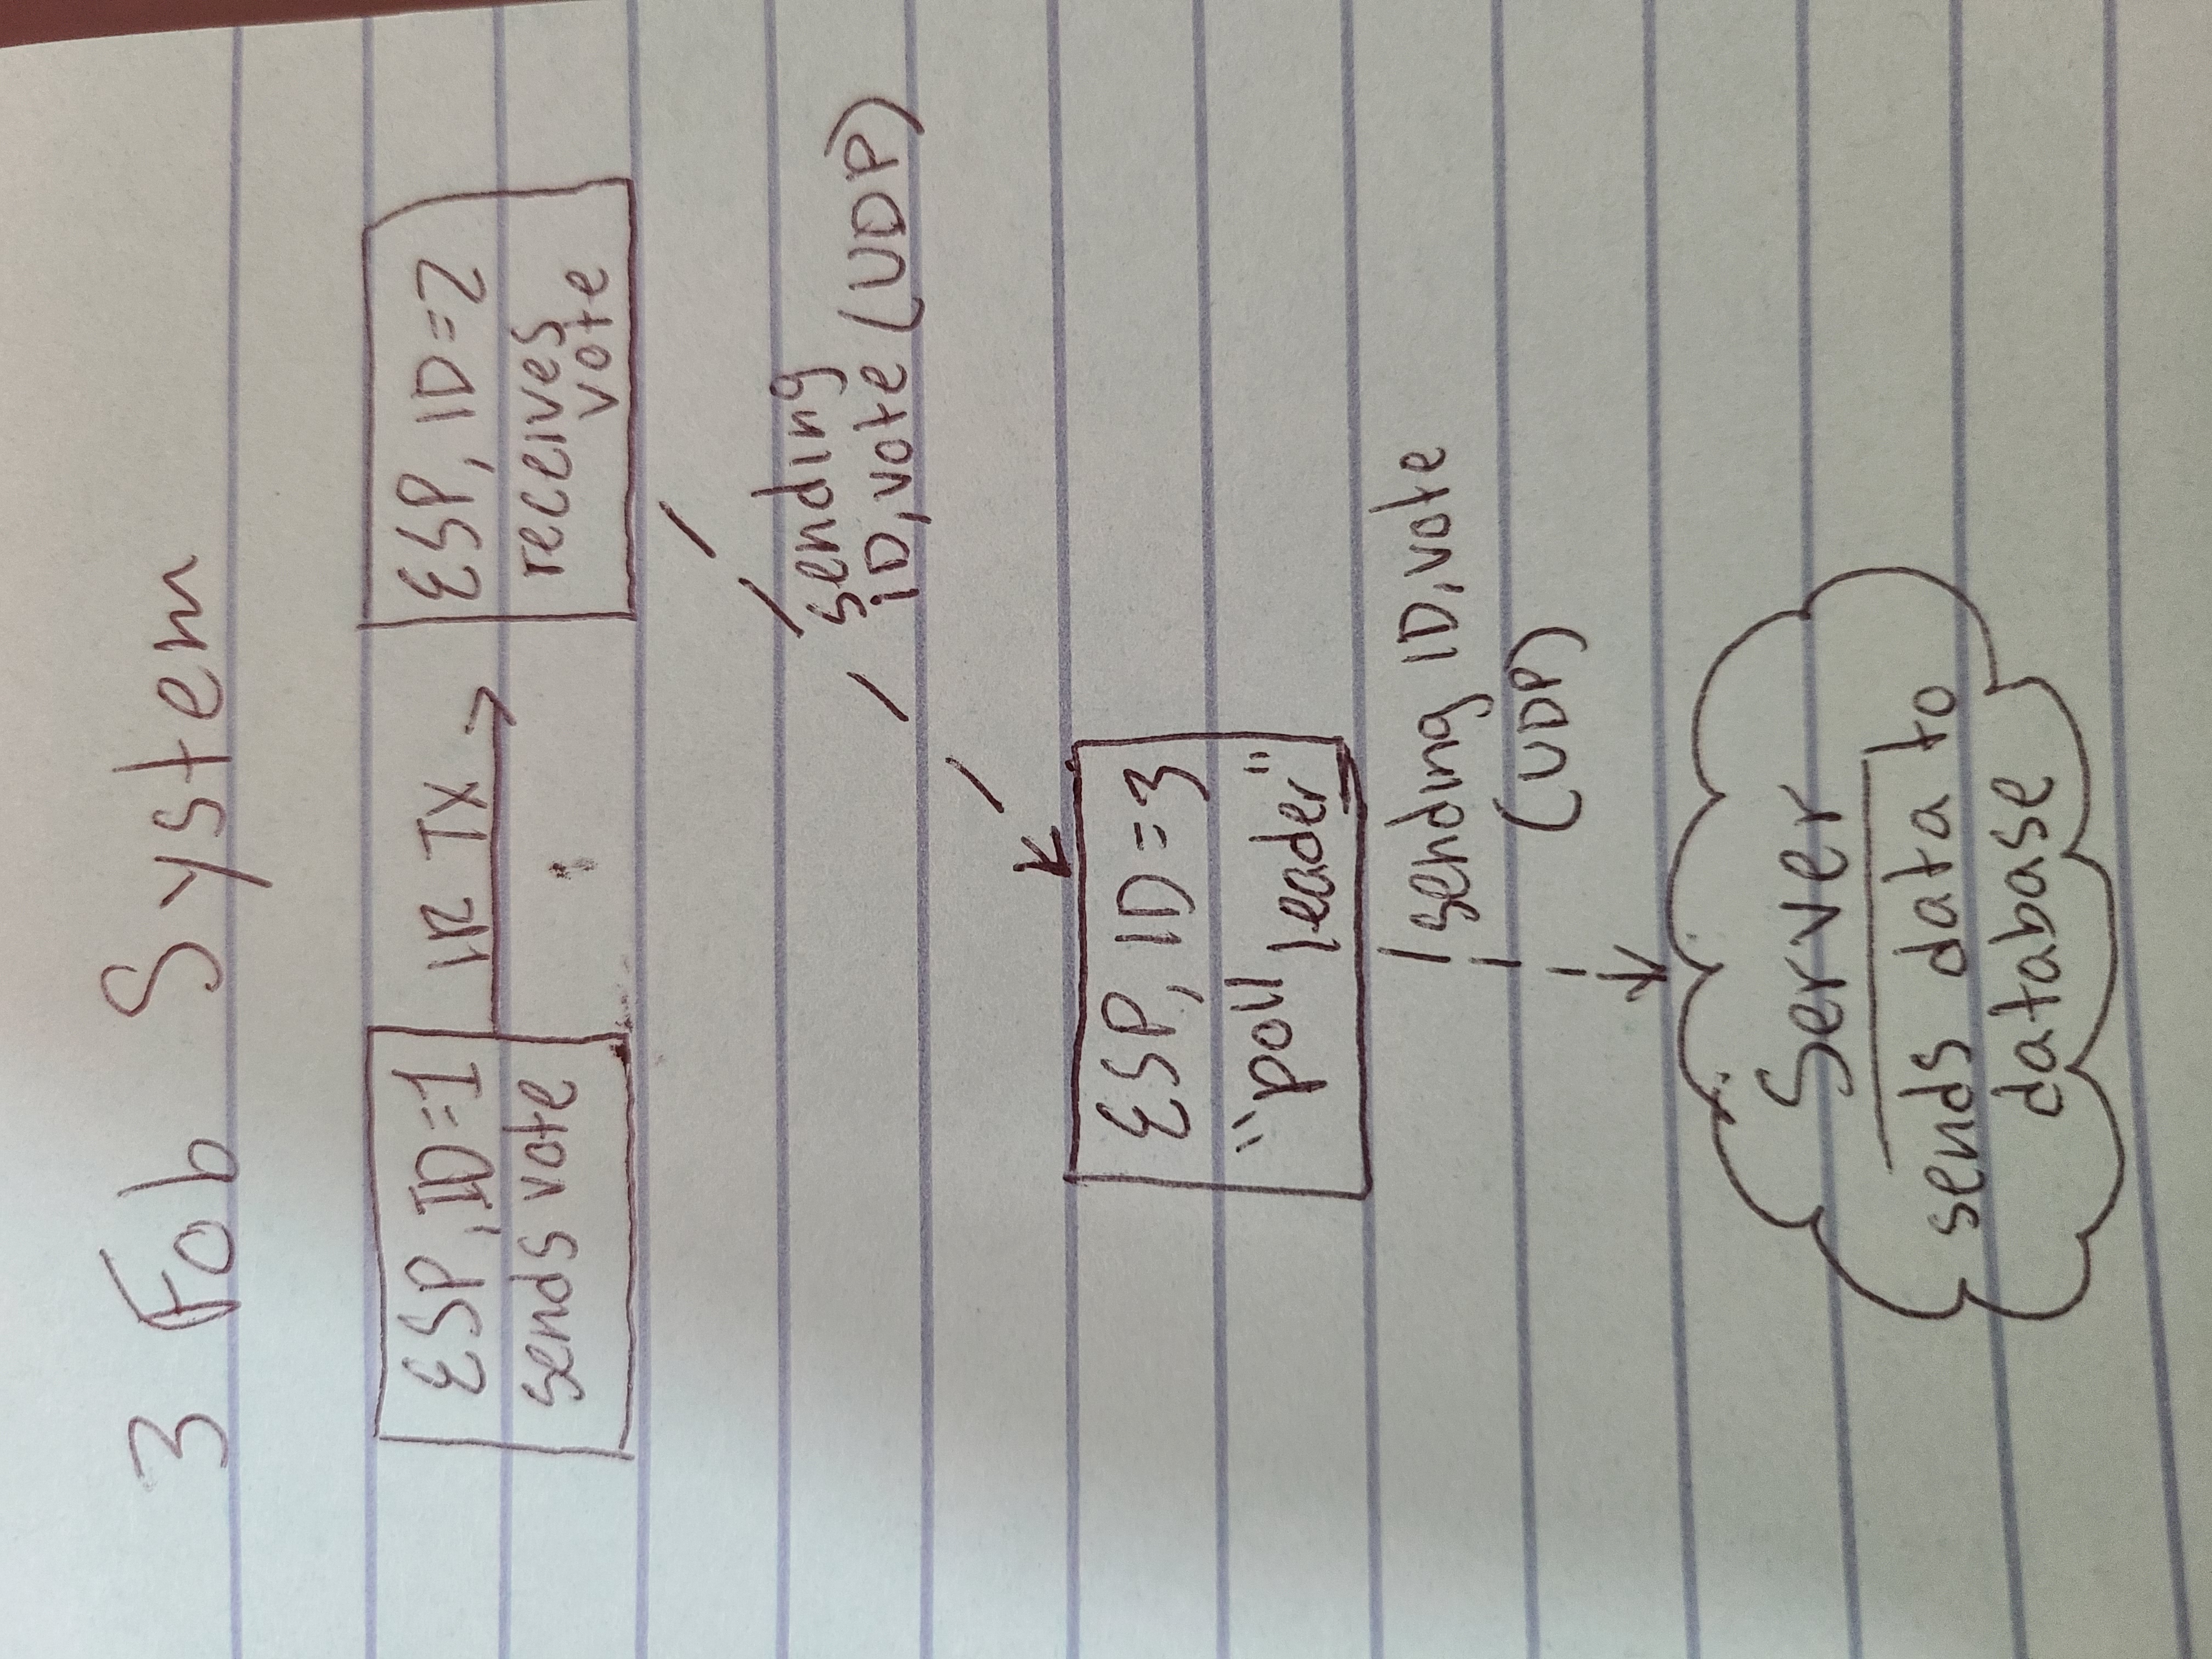 3 Fob System
ESP, ID=1
sends vote
IR TX
ESP, ID=2
receives
vote
sending
ID, vote (UDP)
ESP, ID=3
"poll
leader"
sending ID, vote
(UDP)
Server
sends data to
database